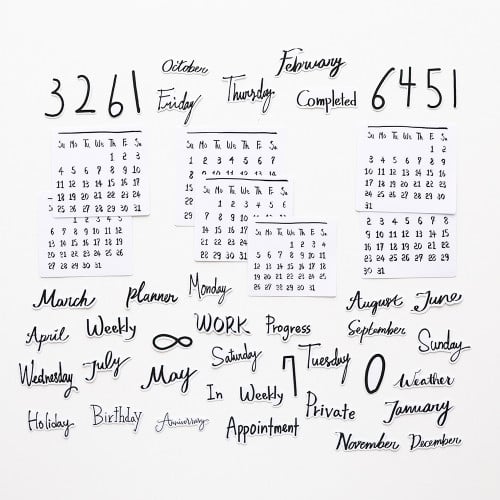 October
February
3261
Friday
Thursday
Completed
6451
Su Mo Tu We Th F Sa
1 2 3
4 5 6 7 8 9 10
11 12 13 14 15 16 17
18 19 20 21 22 23 24
25 26 27 28 29 30 31
6 7 8 9 10 11 12
13 14 15 16 17 18 19
20 21 22 23 24 25 26
27 28 29 30 31
Su Mo Tu We Th F Sa
1 2 3 4 5 6 7
Su Mo Tu We Th F Sa
1 2 3 4 5 6
7 8 9 10 11 12 13
14 15
21 22
28 29 30
Su Mo Tu We Th F Sa
1 2 3 4
5 6 7 8 9 10 11
12 13 14 15 16 17 18
19 20 21 22 23 24 25
26 27 28 29 30 31
Su Mo Tu We Th F Sa
1 2
3 4 5 6 7 8 9
10 11 12 13 14 15 16
17 18 19 20 21 22 23
24 25 26 27 28 29 30
31
2 3 4 5 6 7 8
9 10 11 12 13 14 15
16 17 18 19 20 21 22
23 24 25 26 27 28 29
30 31
March
planner
Monday
August
June
April
Weekly
8
WORK
Progress
September
Sunday
Wednesday
July
May
Saturday
Tuesday
7
0
Weather
In Weekly
Private
January
Holiday
Birthday
Anniversary
Appointment
November
December